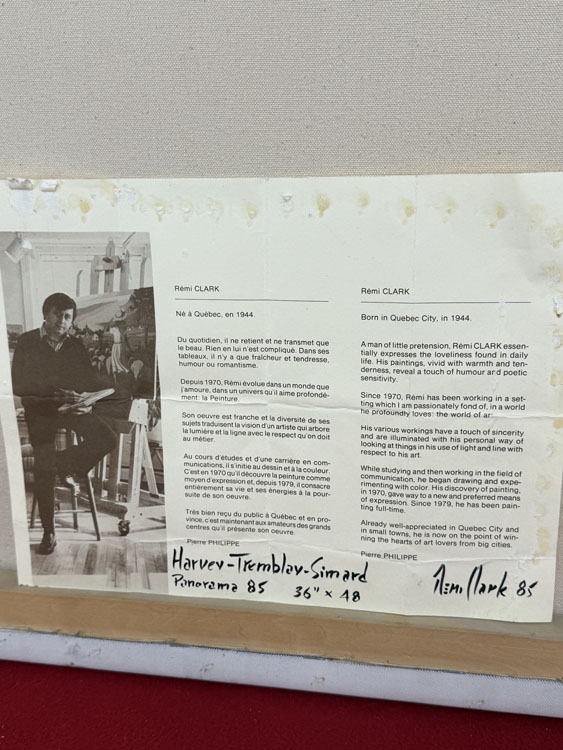 Rémi CLARK
Né à Québec, en 1944.
Du quotidien, il ne retient et ne transmet que
le beau. Rien en lui n'est compliqué. Dans ses
tableaux, il n'y a que fraîcheur et tendresse,
humour ou romantisme.
Depuis 1970, Rémi évolue dans un monde que
j'amoure, dans un univers qu'il aime profondé-
ment: la Peinture.
Son oeuvre est franche et la diversité de ses
sujets traduisent la vision d'un artiste qui arbore
la lumière et la ligne avec le respect qu'on doit
au métier.
Au cours d'études et d'une carrière en com-
munications, il s'initie au dessin et à la couleur.
C'est en 1970 qu'il découvre la peinture comme
moyen d'expression et, depuis 1979, il consacre
entièrement sa vie et ses énergies à la pour-
suite de son oeuvre.
Très bien reçu du public à Québec et en pro-
vince, c'est maintenant aux amateurs des grands
centres qu'il présente son oeuvre.
Pierre PHILIPPE
Rémi CLARK
Born in Quebec City, in 1944.
A man of little pretension, Rémi CLARK essen-
tially expresses the loveliness found in daily
life. His paintings, vivid with warmth and ten-
derness, reveal a touch of humour and poetic
sensitivity.
Since 1970, Rémi has been working in a set-
ting which I am passionately fond of, in a world
he profoundly loves: the world of ar
His various workings have a touch of sincerity
and are illuminated with his personal way of
looking at things in his use of light and line with
respect to his art.
While studying and then working in the field of
communication, he began drawing and expe-
rimenting with color. His discovery of painting,
in 1970, gave way to a new and preferred means
of expression. Since 1979, he has been pain-
ting full-time.
Already well-appreciated in Quebec City and
in small towns, he is now on the point of win-
ning the hearts of art lovers from big cities.
Pierre PHILIPPE
Harvey-Tremblay-Simard
Panorama 85 36" x 48
Rémi Clark 85